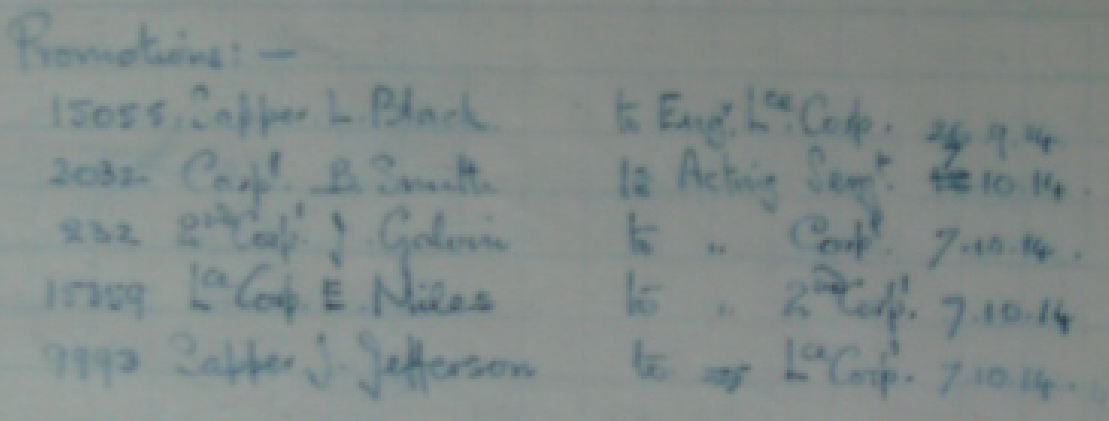 Promotions: —
15055. Sapper L. Black to Eng. Lce. Corp. 26.9.14
2032 Corpl. B. Smith to Acting Sergt. 7 10.14.
232 2nd Corpl. J. Galvin to " Corpl. 7.10.14.
15259 Lce Corp. E. Niles to " 2nd Corpl. 7.10.14
Sapper J. Jefferson to Lce Corpl. 7.10.14.